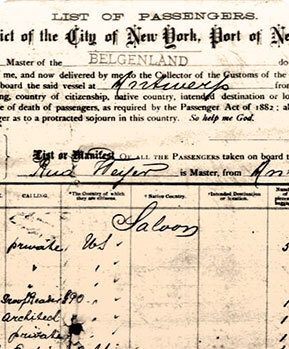 LIST OF PASSENGERS.
ict of the City of New York, Port of Ne
Master of the BELGENLAND do
me, and now delivered by me to the Collector of the Customs of the
board the said vessel at Antwerp
ng, country of citizenship, native country, intended destination or lo
e of death of passengers, as required by the Passenger Act of 1882; al
ger as to a protracted sojourn in this country. So help me God.
List or Manifest OF ALL THE PASSENGERS taken on board t
is Master, from An
CALLING. *The Country of which they are citizens. *Native Country. *Intended Destination or Location.
Saloon
private US
architect
private